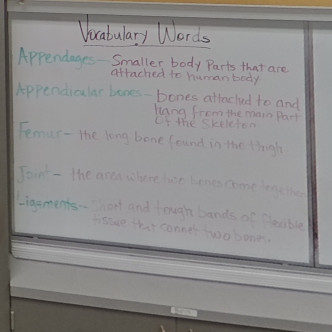 Vocabulary Words
Appendages - Smaller body parts that are
attached to human body
Appendicular bones - bones attached to and
hang from the main part
of the skeleton
Femur - the long bone found in the thigh
Joint - the area where two bones come together
Ligaments - Short and tough bands of flexible
tissue that connect two bones.